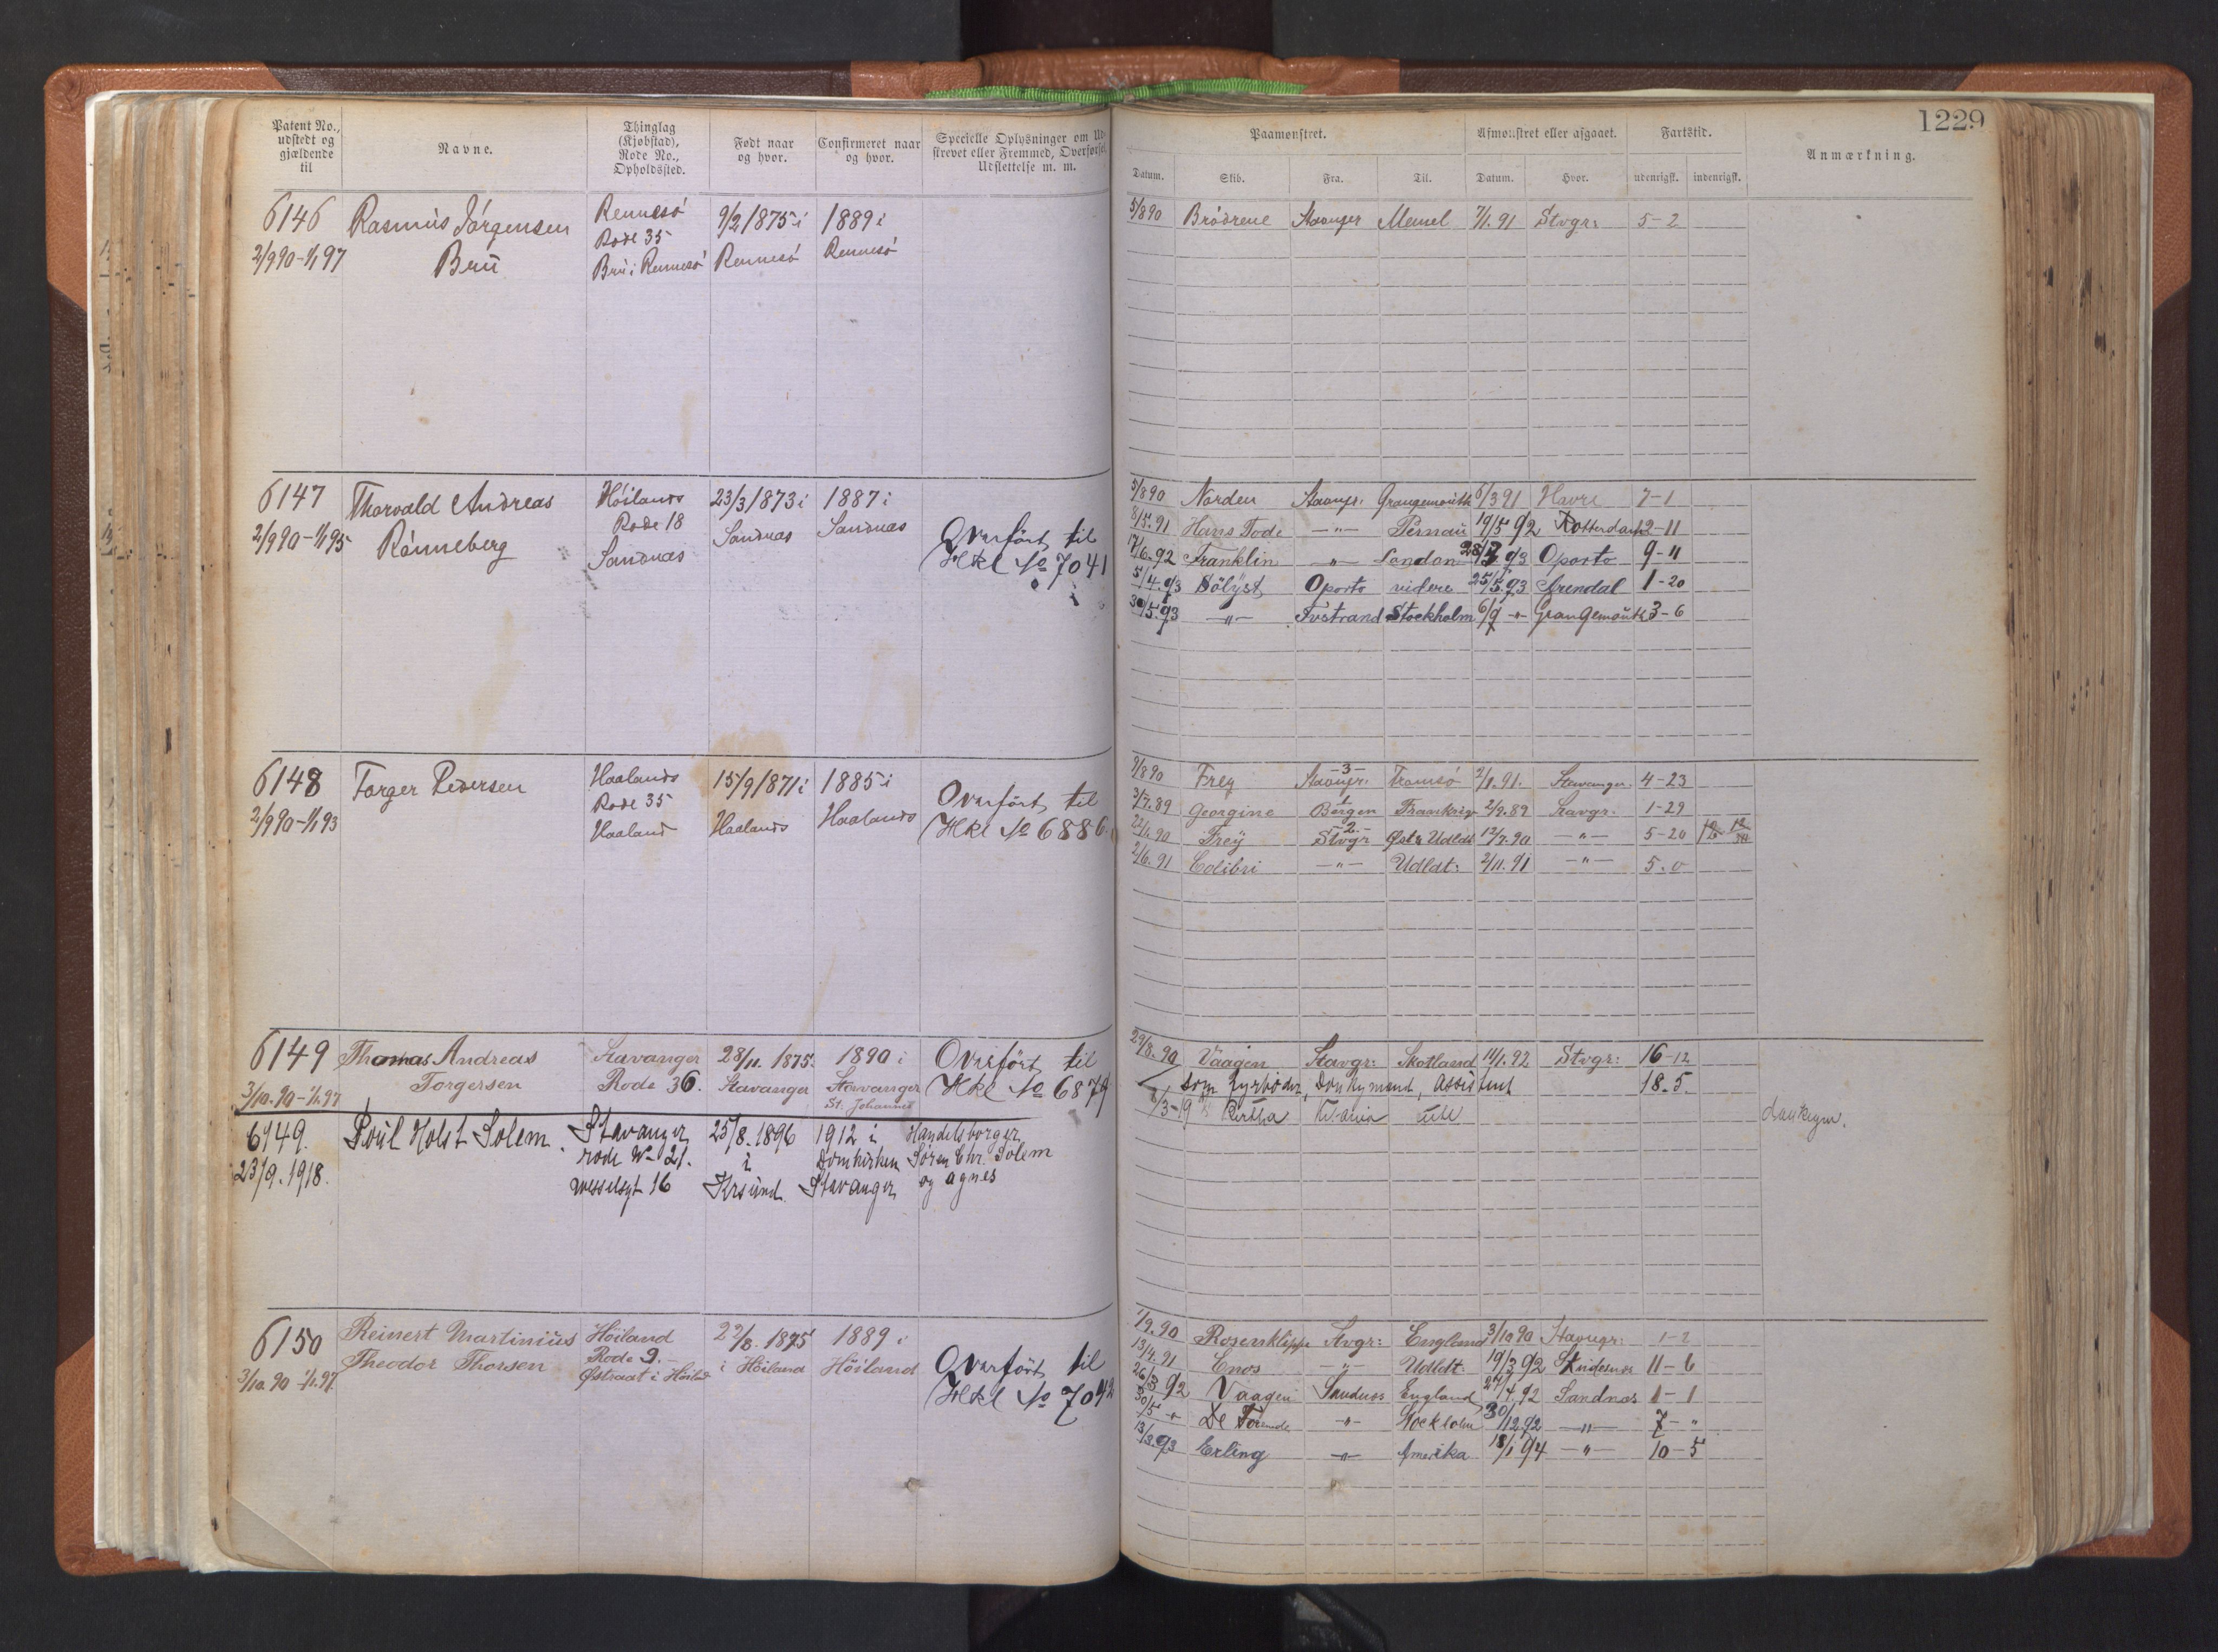 1229
Patent No., udstedt og gjældende til | Navne. | Thinglag (Kjøbstad), Rode No., Opholdssted. | Født naar og hvor. | Confirmeret naar og hvor. | Specielle Oplysninger om Udskrevet eller Fremmed, Overførsel, Udslettelse m. m.
Paamønstret. | Afmønstret eller afgaaet. | Fartstid. | Anmærkning.
Datum. | Skib. | Fra. | Til. | Datum. | Hvor. | udenrigsk. | indenrigsk.
6146 Rasmus Jørgensen Rennesö 9/2 1875 i 1889 i
Rode 35
2/9 90 - 1/1 97 Bru Bru i Rennesö Rennesö Rennesö
5/8 90 Brödrene Stavanger Memel 7/1. 91 Stvgr: 5-2
6147 Thorvald Andreas Höilands 23/3 1873 i 1887 i
2/9 90 - 1/1 95 Rönneberg Rode 18 Sandnæs Sandnæs
Sandnæs
Overfört til
Hkl No 7041
5/8 90 Norden Stavngr. Grangemouth 6/3 91 Havre 7-1
8/5. 91 Hans Tode -"- Pernau 19/5 92 Rotterdam 12-11
17/6. 92 Franklin -"- London 93 Oporto 9-11
5/4. 93 Sölyst Oporto videre 25/5. 93 Arendal 1-20
30/5. 93 -"- Tvstrand Stockholm 6/9 -"- Grangemouth 3-6
6148 Torger Pedersen Haalands 15/9 1871 i 1885 i
2/9 90 - 1/1 93 Rode 35 Haalands Haalands
Haaland
Overfört til
Hkl No 6886
9/8 90 Frey -3- Stavngr. Tromsö 2/1. 91. Stavanger. 4-23
3/7. 89 Georgine 1 Bergen Frankrig 2/9. 89 Stavgr. 1-29
22/1. 90 Frey 2.- Stvgr Øst & Udldt 12/7. 90 -"- 5-20
2/6. 91 Colibri -"- Udldt: 2/11. 91 -"- 5. 0
6149 Thomas Andreas Stavanger 28/11. 1875. 1890 i Overfört til
3/10. 90 - 1/1. 97 Torgersen Rode 36. Stavanger Stavanger Hkl No 6879
St. Johannes
29/8. 90 Vaagen Stavgr: Skotland 11/1. 92 Stvgr: 16-12
som Fyrböder, Donkymand, Assistent 18. 5
6149. Poul Holst Solem. Stavanger 25/8. 1896 1912 i Handelsborger
23/9. 1918. rode No 21. i Domkirken Sören Chr. Solem
Wesselsgt 16 Krsund. Stavanger og Agnes
Bertha ude
donkeym.
6150 Reinert Martinius Höiland 22/8. 1875 1889 i
3/10. 90 - 1/1. 97. Theodor Thorsen Rode 9. i Höiland Höiland
Østraat i Höiland
Overfört til
Hkl No 7042
1/9. 90 Rosenklippe Stvgr: England 3/10 90 Stavngr: 1-2
13/4. 91 Enos -"- Udldt. 19/3 92 Skudesnes 11-6
26/3 92 Vaagen Sandnes England 27/4. 92 Sandnæs 1-1
30/5 -"- De Forende -"- Stockholm 30/12. 92 -"- 7-"
13/3. 93 Erling -"- Amerika 18/1 94 -"- 10-5